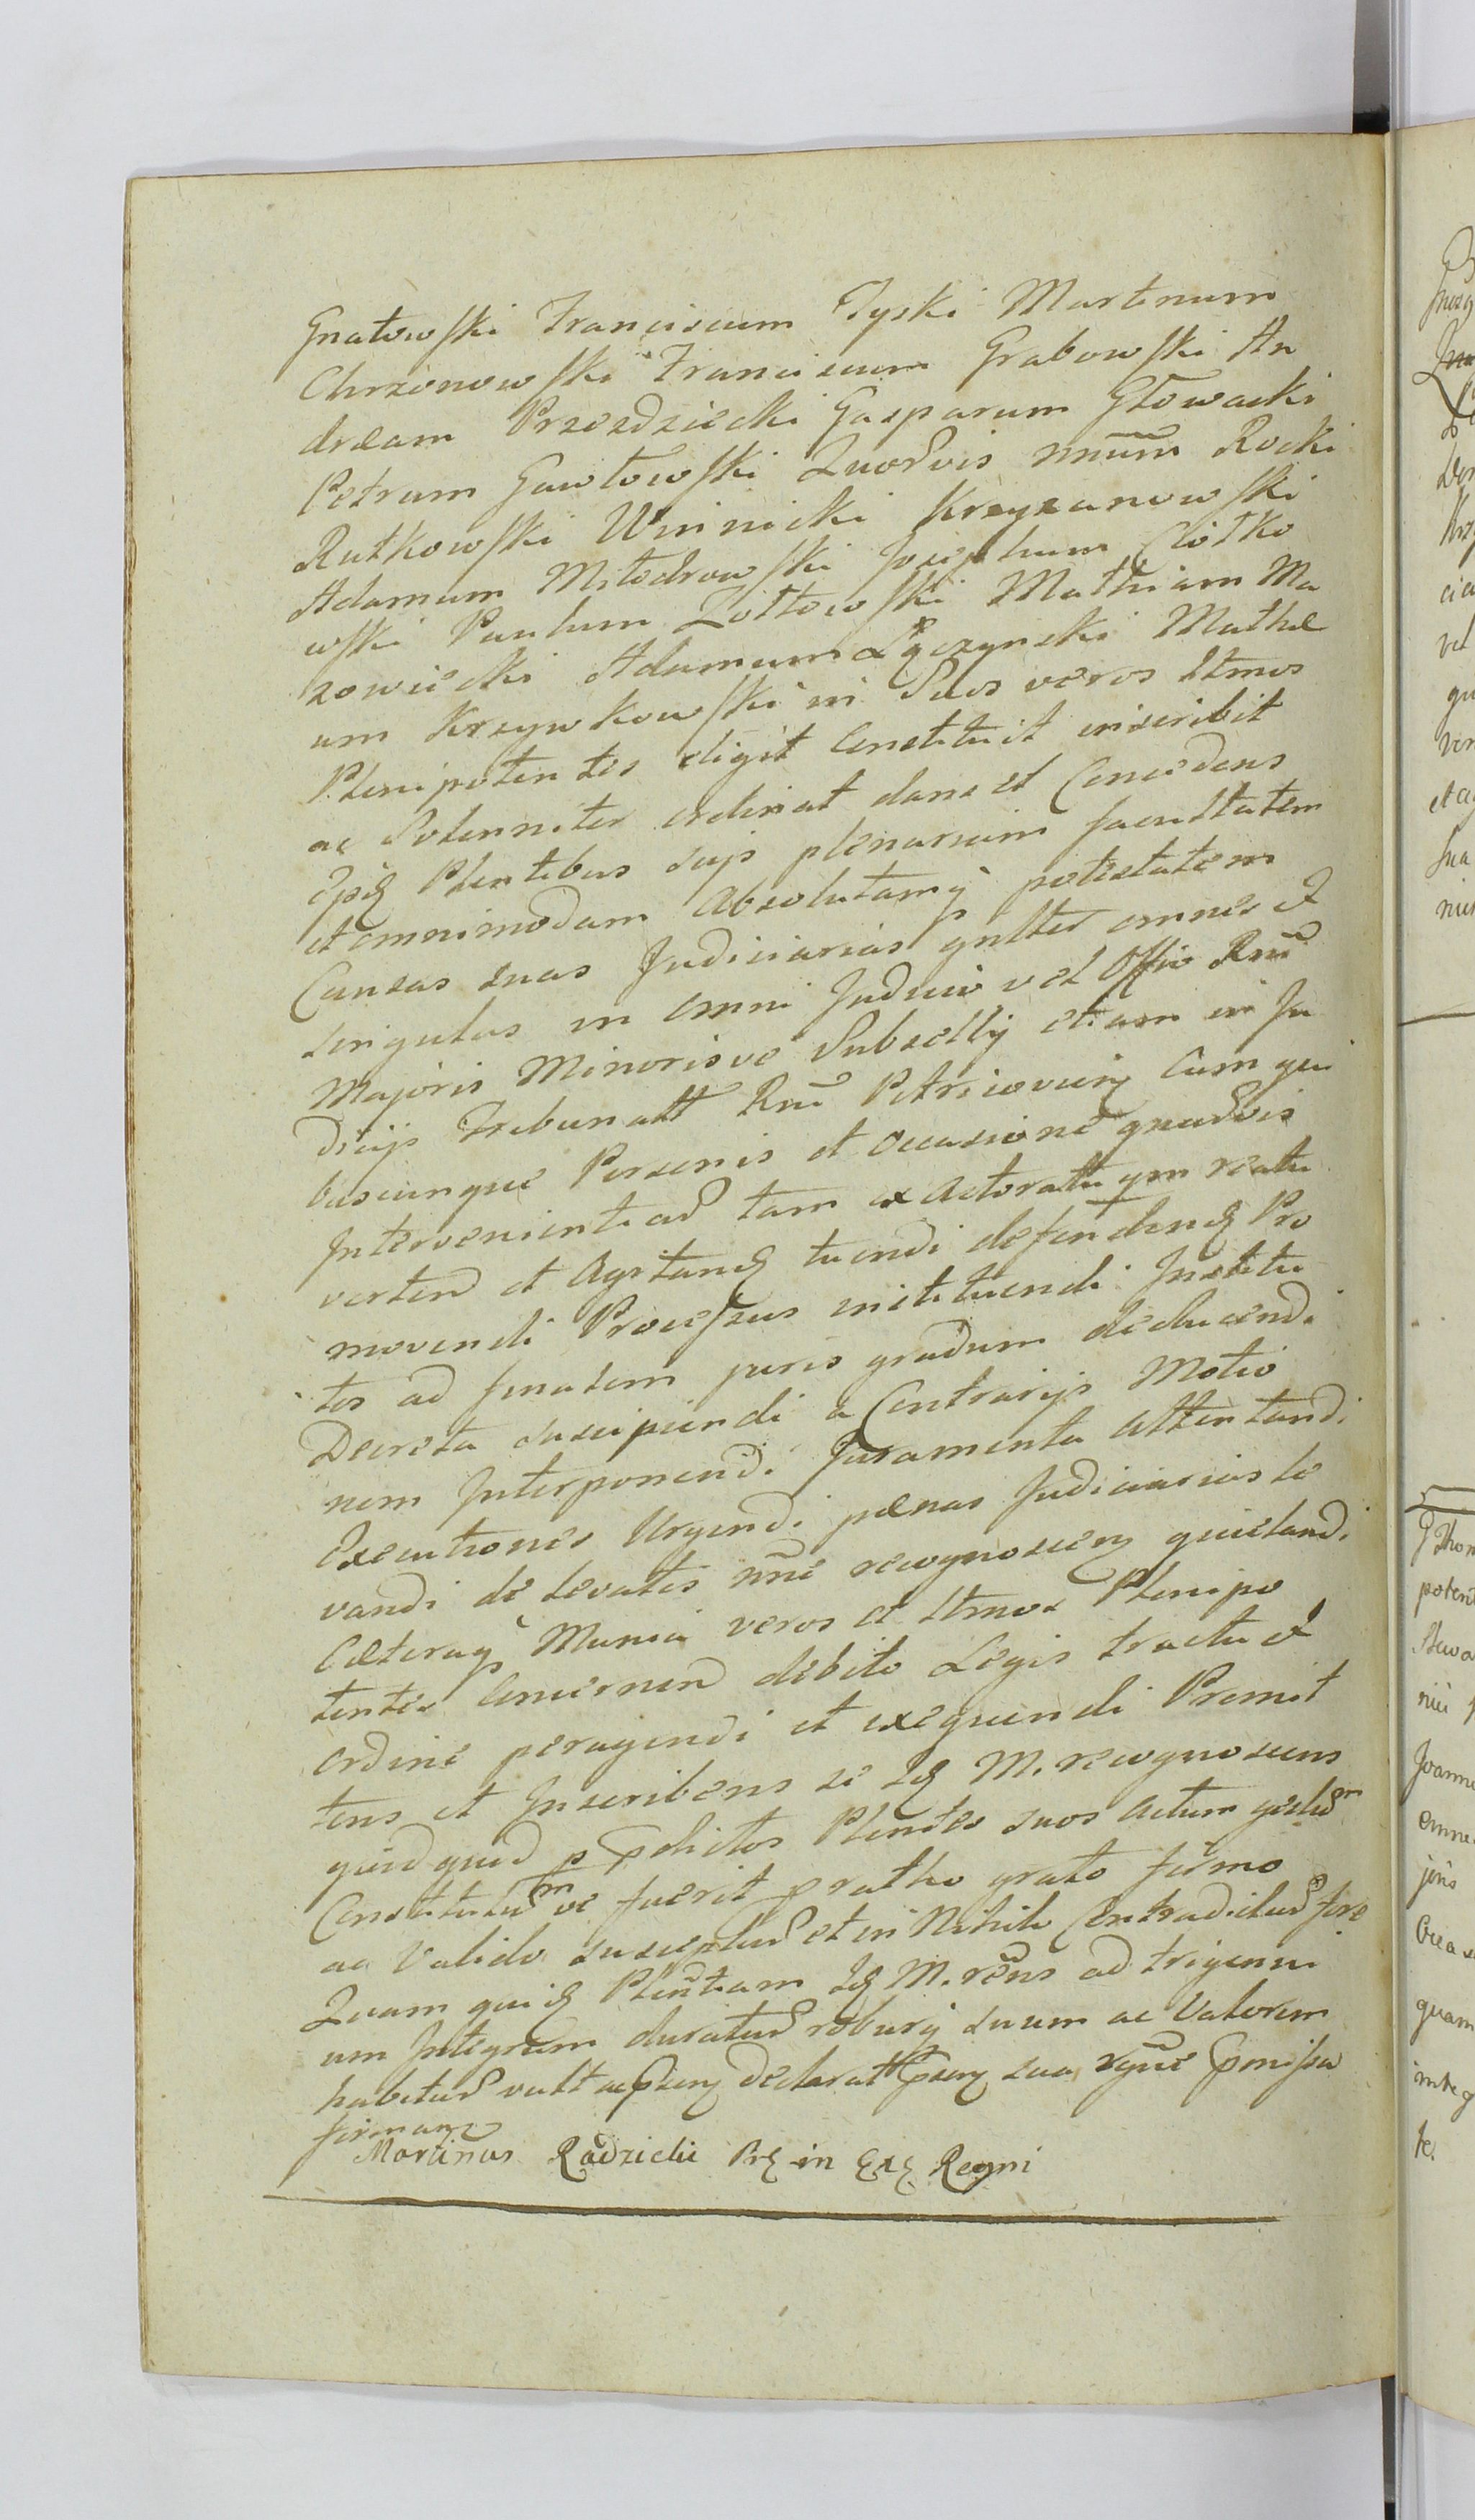 Gnatowski Franciscum Tyski Martinum
Chrzonowski Franciscum Grabowski An
dream Przezdziecki Gasparum Głowacki
Petrum Gawłowski Quosvis nnũm Rocki
Rutkowski Winnicki Krzyzanowski
Adamum Miłodrowski Josephum Ciołko
wski Paulum Zołtowski Mathiam Ma
zowiecki Adamum Łączynski Mathe
um Krzywkowski in Suos veros Ltmos
Plenipotentes eligit Constituit inscribit
ac Solenniter ordinat dans et Concedens
Plentibus suis plenariam facultatem
et omnimodam Absolutamq potestatem
Causas suas Judiciarias gnlter omnes et
singulas in omni Judicio vel Offio Rni
Majoris Minorisve Subsellij etiam in Ju
dicijs Tribunall Rni Petricovien Cum qui
buscunque Personis et occasione quavis
Intervenient ad tam ex Actoratu qm reatu
verten et Agitand tuendi defendend Pro
movendi Processus instituendi Institu
tos ad finalem juris gradum deducendi
Decreta suscipiendi a Contrarijs Motio
nem Interponendi Juramenta Attentandi
Executiones Urgendi pœnas Judiciarias le
vandi de levatis nñe recognoscen quietandi
Cæteraq Munia veros et Ltmos Plenipo
tentes Concernen debito Legis tractu et
ordine peragendi et exequendi Promit
tens et Inscribens se Id M. recognoscens
quidquid p pdictos Plentes suos actum gestum
Constitutum ve fuerit pro ratho grato firmo
ac Valido suscepturum et in Nihilo Contradicturum fore
Quam quid Plentiam Id M. rens ad trigenni
um Integrum duraturum roburq suum ac Valorem
habiturum vult ac declarat sua rgne pmissa
firman
Martinus Radzicki in Regni